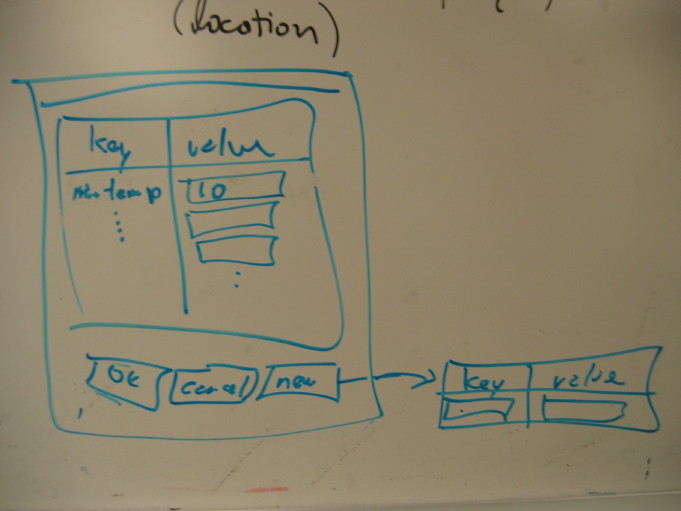 (location)
key value
temp 10
OK cancel new
key value